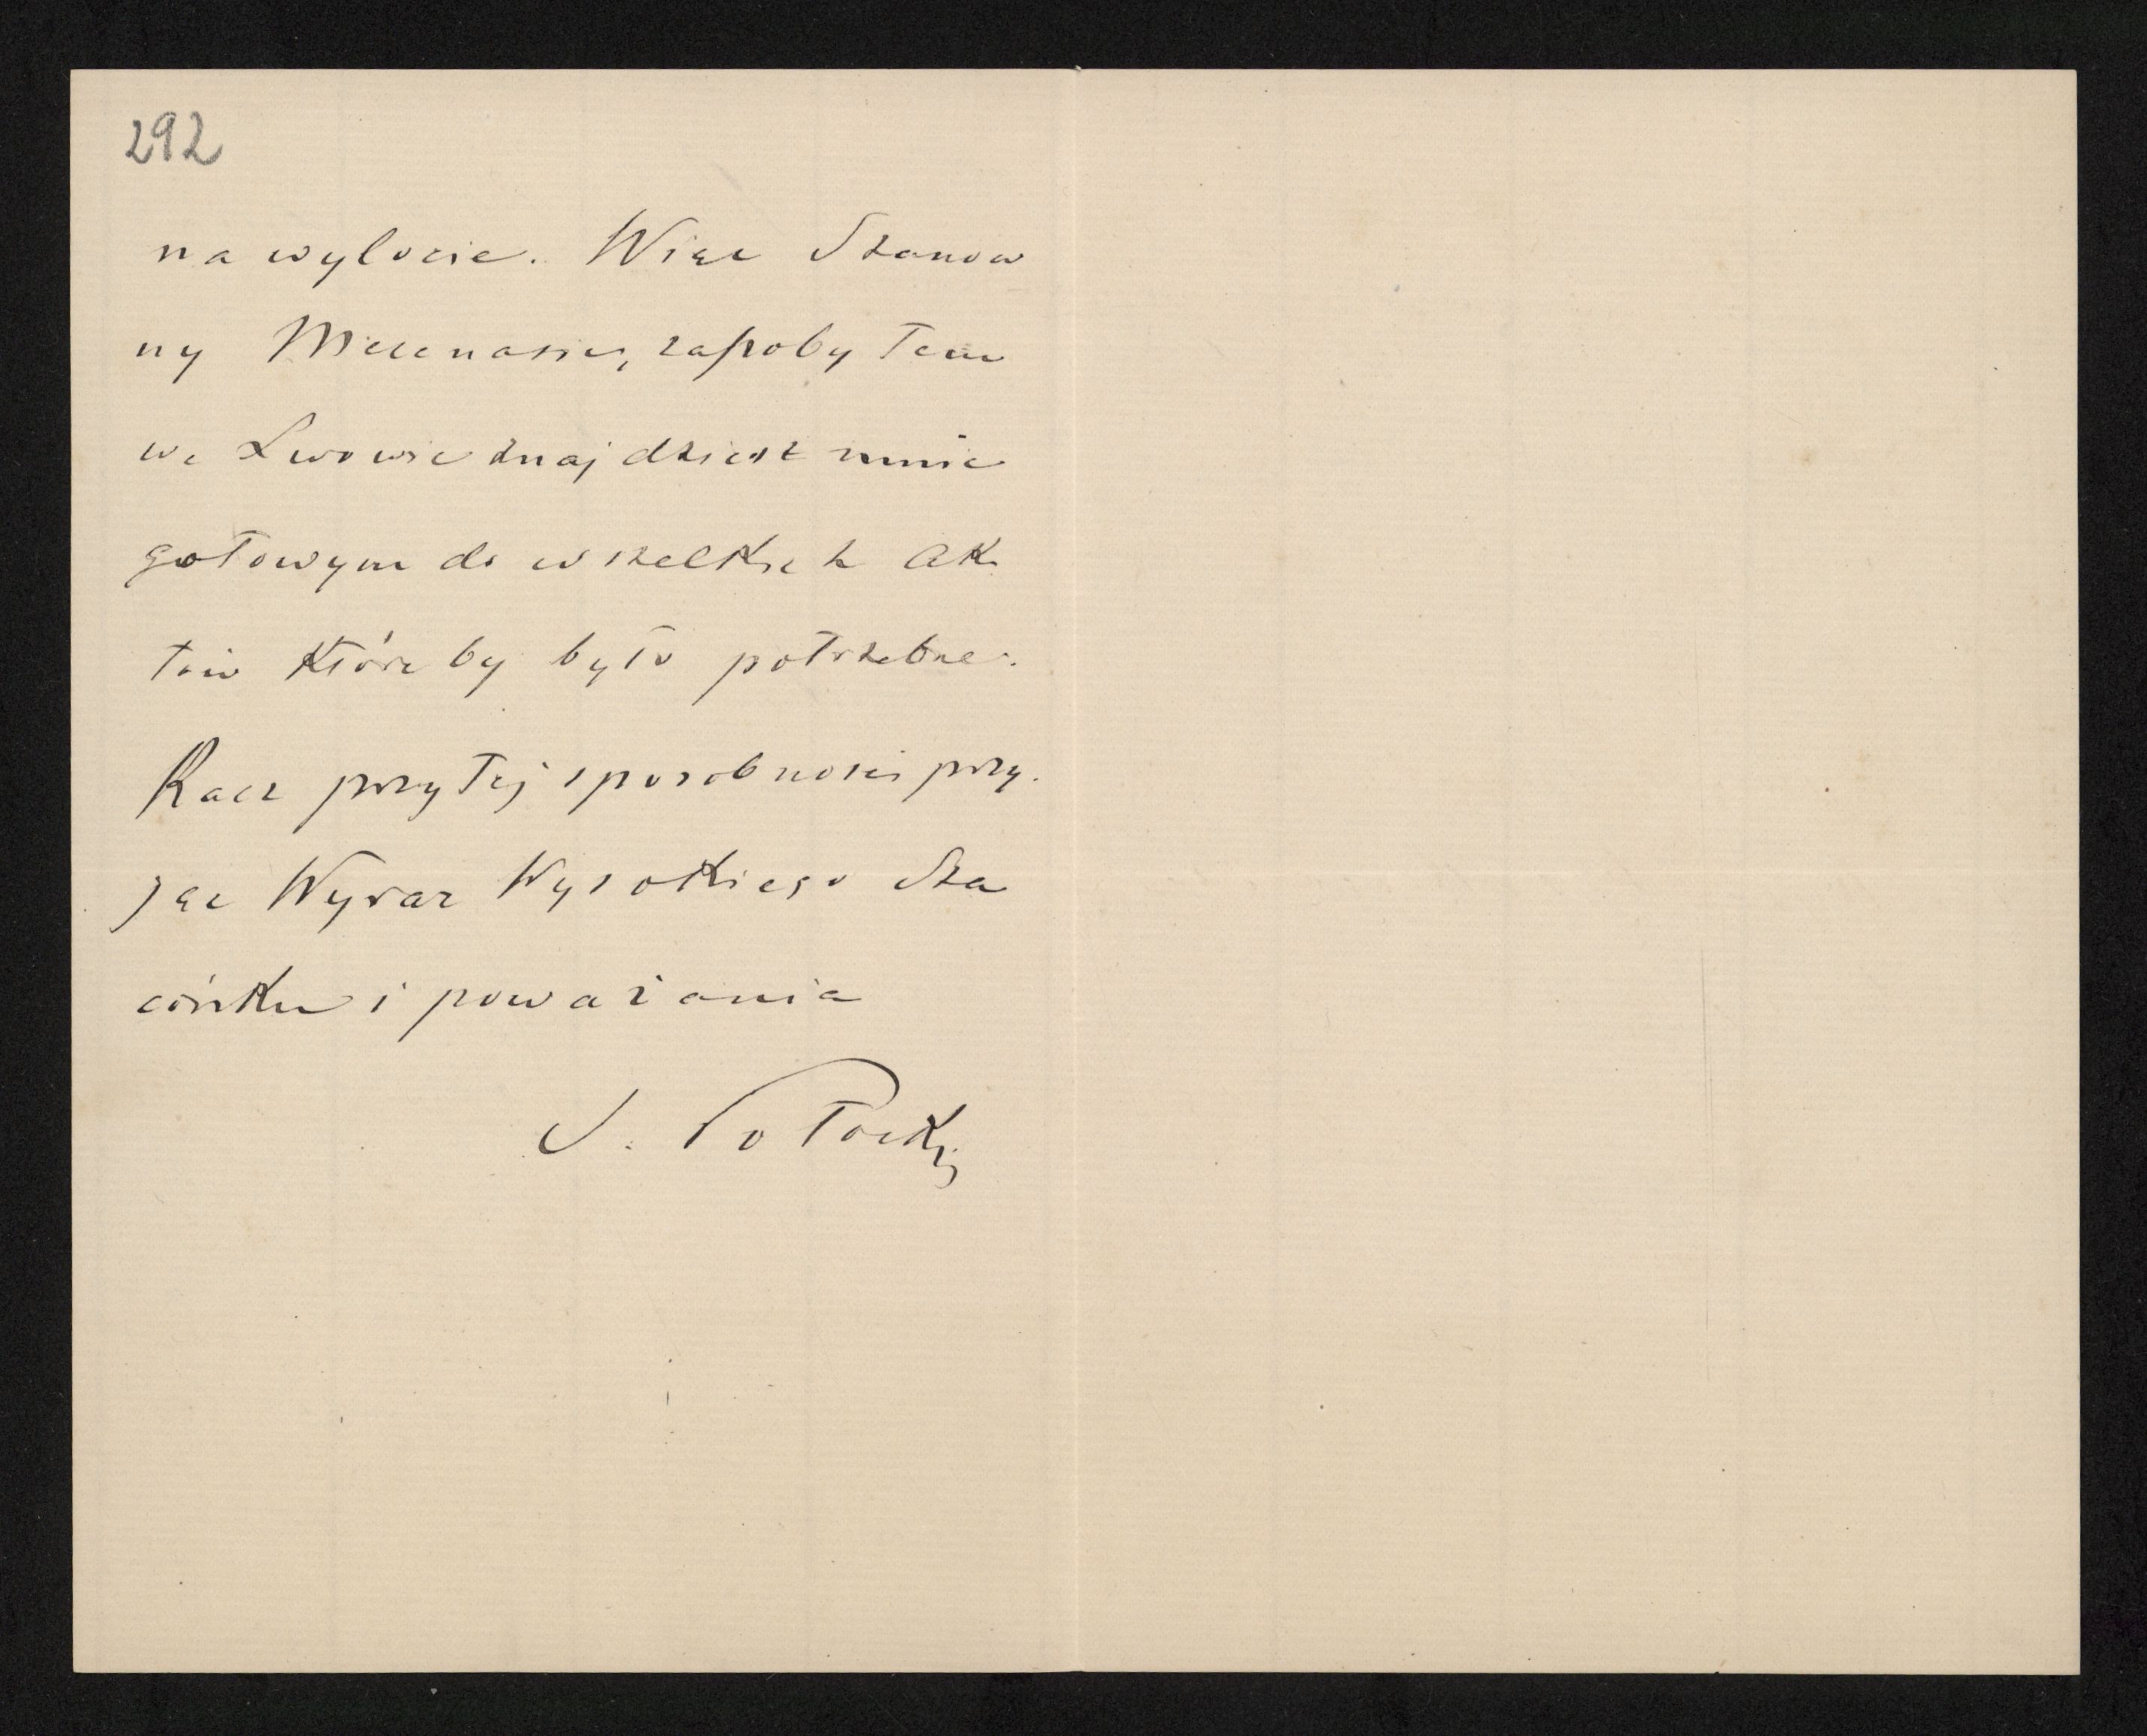 292
na wylocie. Więc Szanow
ny Mecenasie, zapobytem
we Lwowie znajdziesz mnie
gotowym do wszelkich Ak
tów któreby było potrzebne.
Racz przy tej sposobności przy.
jąć Wyraz Wysokiego Sza
cónku i poważania
S. Potocki